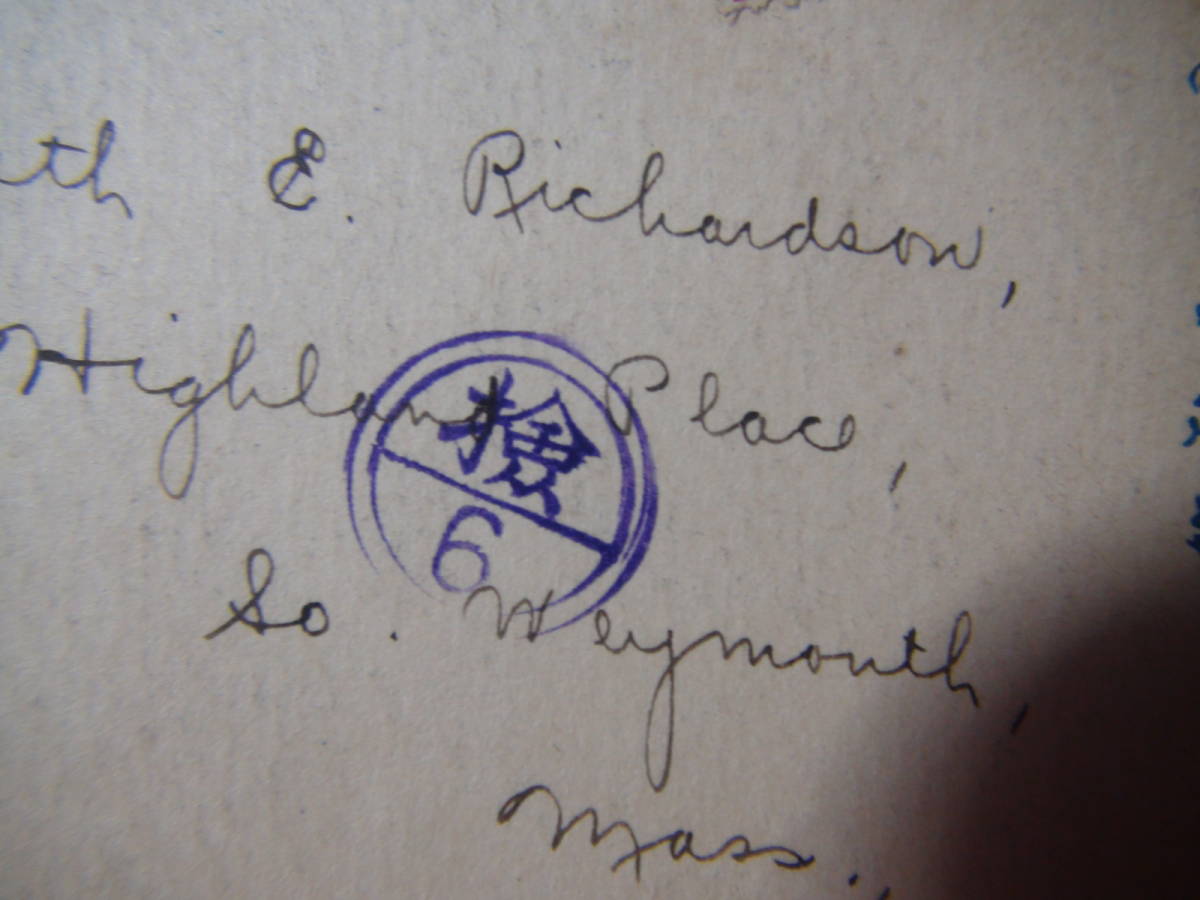 th E. Richardson,
Highland Place,
検
6
So. Weymouth,
Mass.,